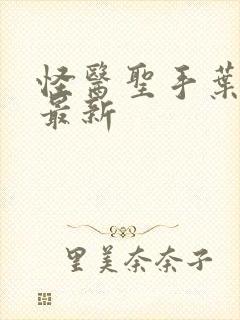 怪醫聖手葉
最新
里美奈奈子